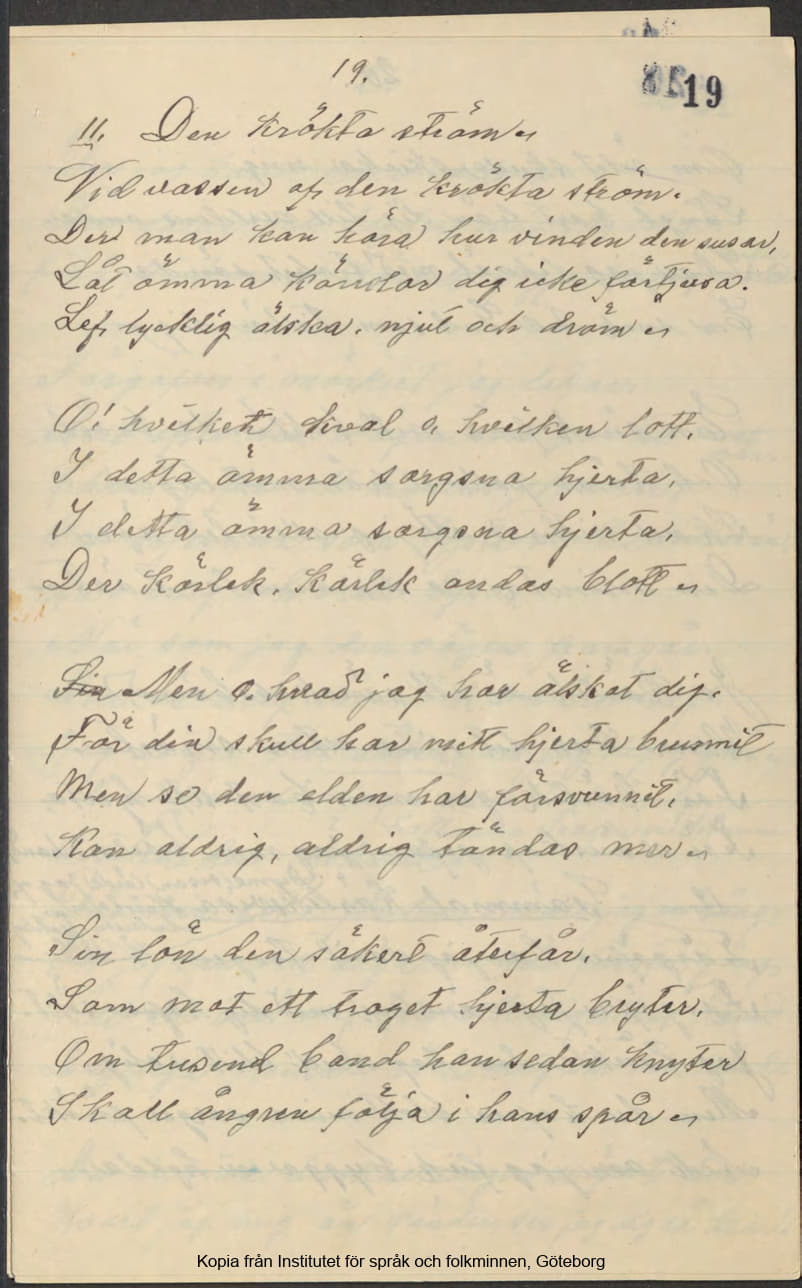 19.
19
11. Den krökta ström
Vid vassen af den krökta ström.
Der man kan höra hur vinden den susar,
Låt ömma känslor dig icke förtjusa.
Lef lycklig älska. njut och dröm
O! hvilket kval o, hvilken lott.
I detta ömma sorgsna hjerta,
I detta ömma sorgsna hjerta,
Der kärlek. kärlek andas blott
Sin Men o. hvad jag har älskat dig.
För din skull har mitt hjerta brunnit
Men se den elden har försvunnit,
Kan aldrig, aldrig tändas mer
Sin lön den säkert återfår,
Som mot ett troget hjerta bryter,
Om tusend band han sedan knyter
Skall ångren följa i hans spår
Kopia från Institutet för språk och folkminnen, Göteborg